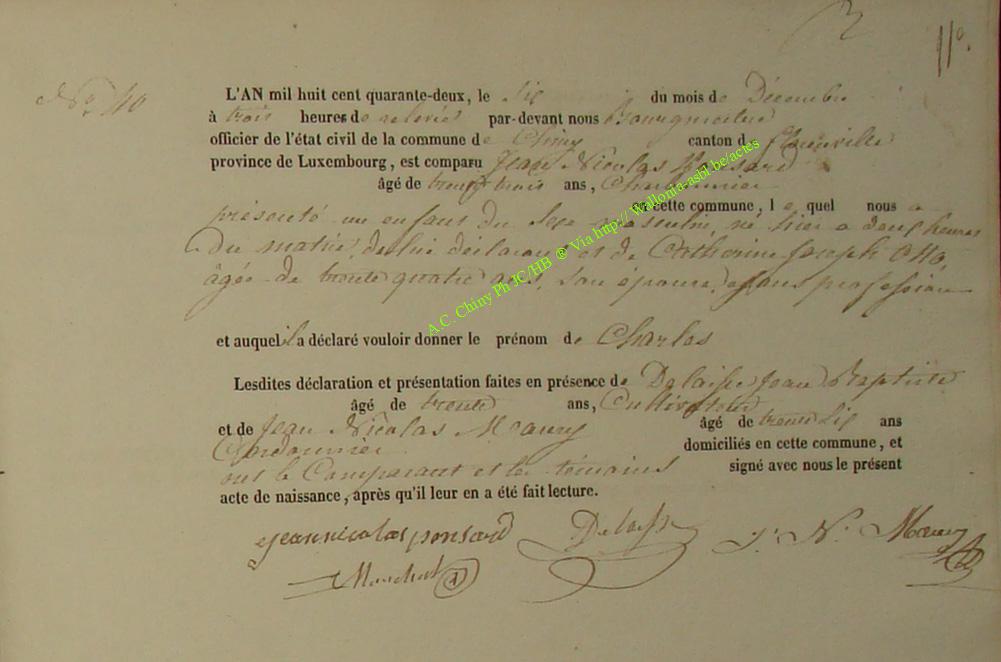 11º.
Nº 40
L'AN mil huit cent quarante-deux, le six du mois de Décembre
à trois heures de relevée par-devant nous Bourgmestre
officier de l'état civil de la commune de Chiny canton de Florenville
province de Luxembourg, est comparu Jean Nicolas Ponsard
âgé de trente trois ans, Charbonnier
de cette commune, le quel nous a
présenté un enfant du sexe masculin, né hier a deux heures
du matin, de lui déclarant et de Catherine Joseph Otto,
âgée de trente quatre ans, son épouse, sans profession
et auquel il a déclaré vouloir donner le prénom de Charles
Lesdites déclaration et présentation faites en présence de Delaisse Jean Baptiste
âgé de trente ans, Cultivateur
et de Jean Nicolas Maury âgé de trente six ans
Cordonnier domiciliés en cette commune, et
ont le Comparant et les témoins signé avec nous le présent
acte de naissance, après qu'il leur en a été fait lecture.
jeannicolas ponsard Delaisse J. N. Maury
A.C. Chiny Ph JC/HB ® Via http:// Wallonia-asbl be/actes